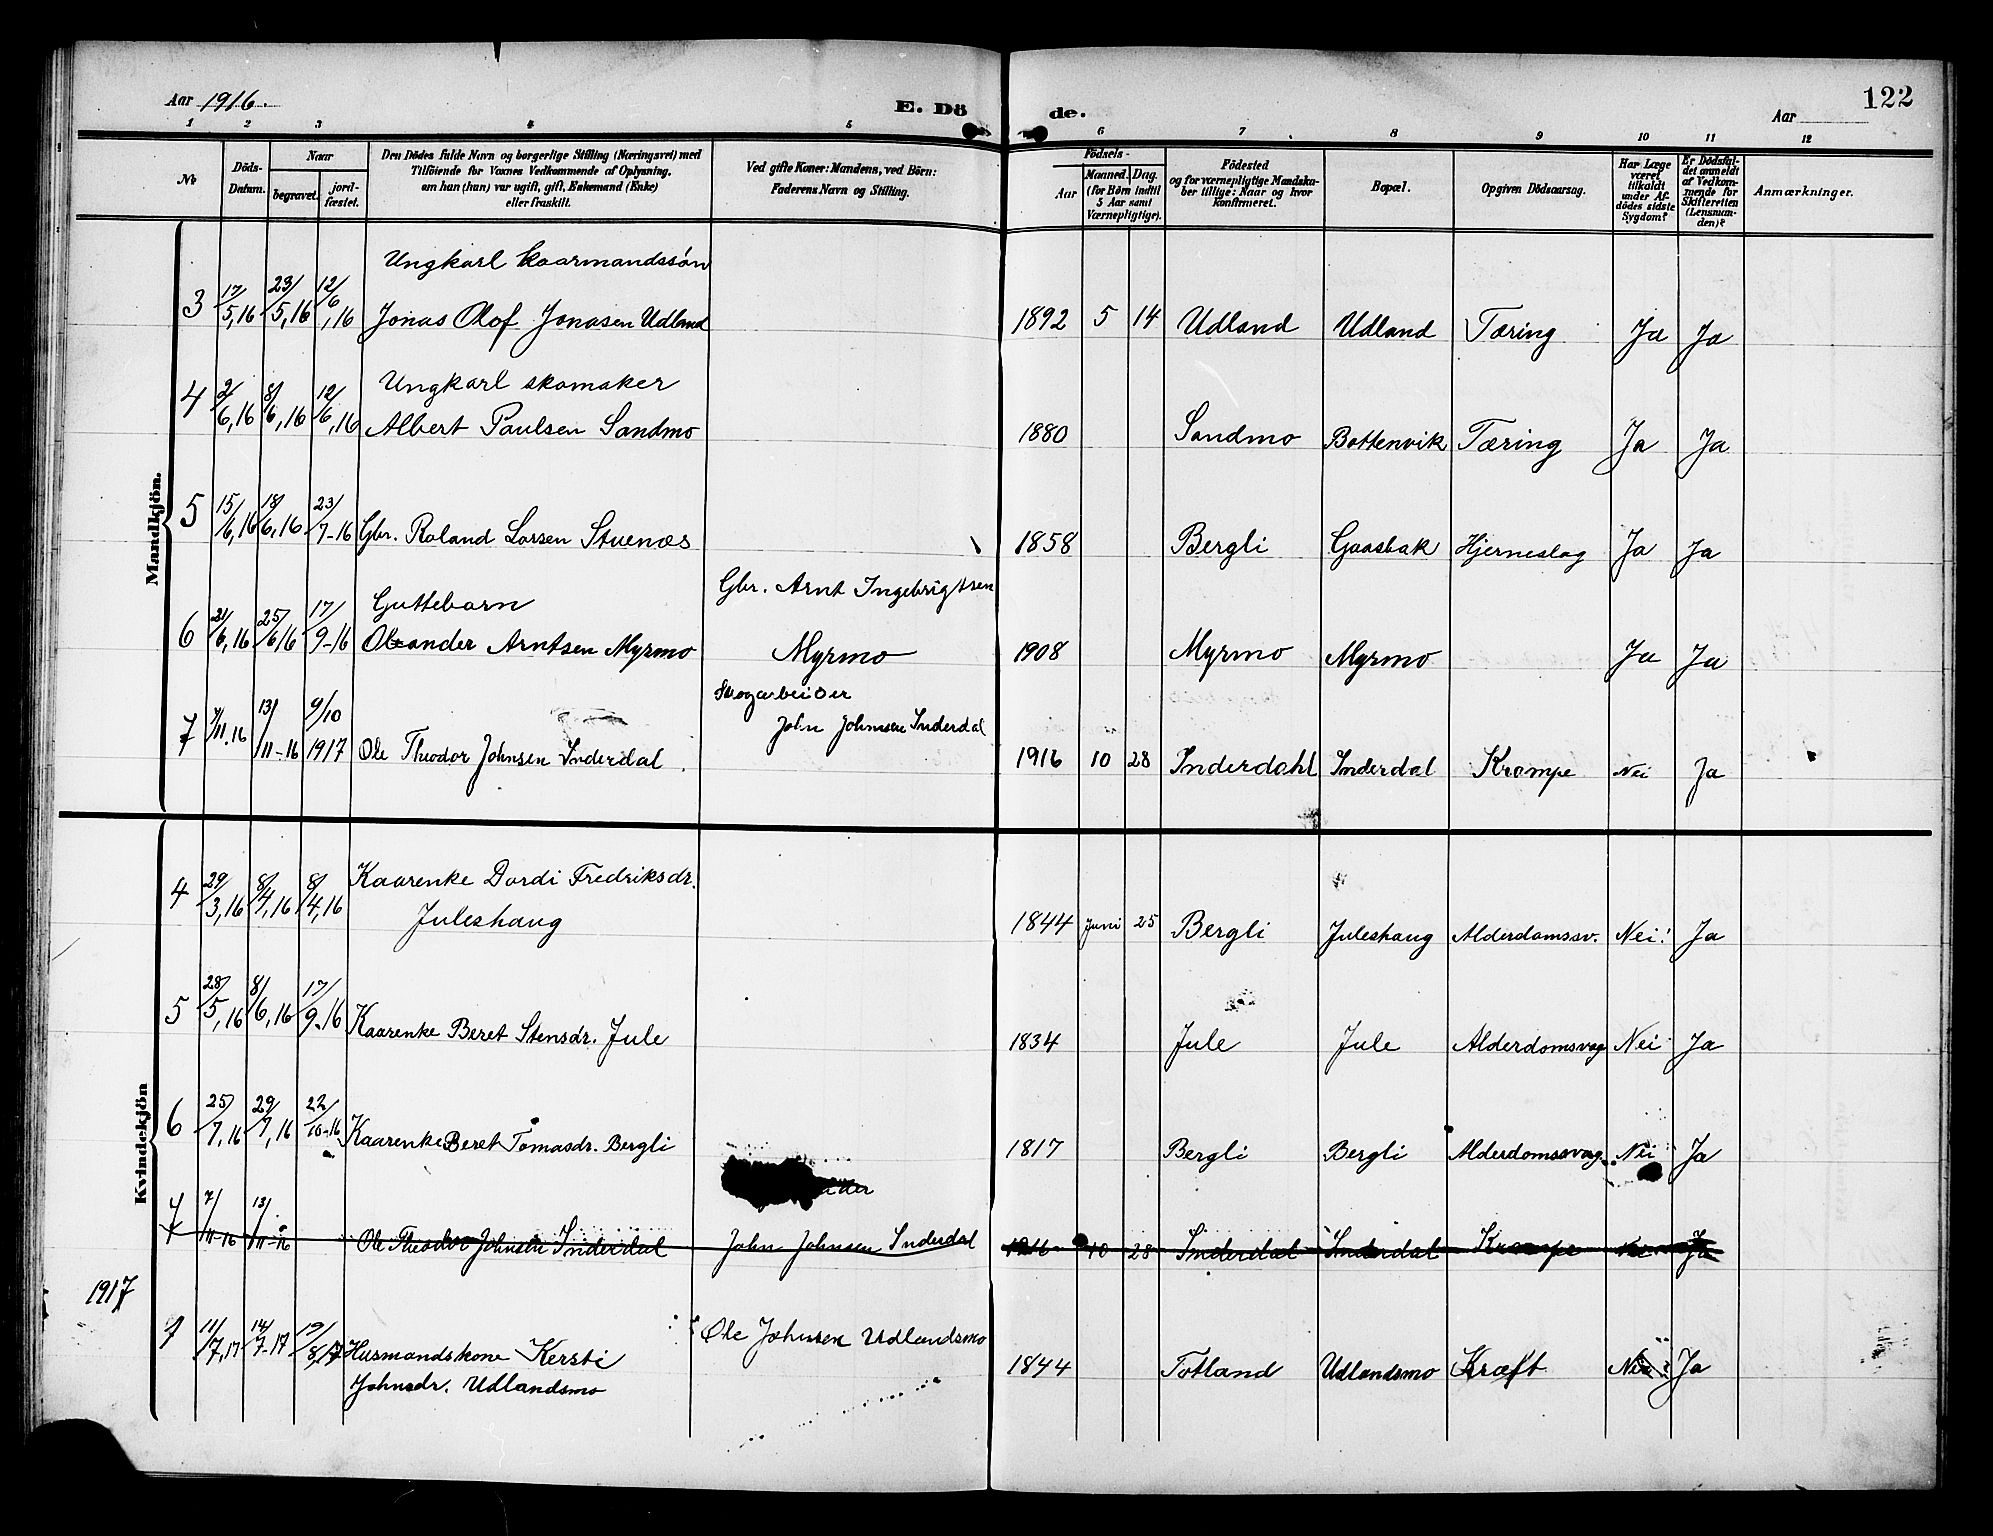 Aar 1916.
E. Dö de.
Aar
122
1 2 3 4 5 6 7 8 9 10 11 12
No
Döds-Datum.
Naar
begravet.
jordfæstet.
Den Dödes fulde Navn og borgerlige Stilling (Næringsvei) med
Tilföiende for Voxnes Vedkommende af Oplysning,
om han (hun) var ugift, gift, Enkemand (Enke)
eller fraskilt.
Ved gifte Koner: Mandens, ved Börn:
Faderens Navn og Stilling.
Födsels-
Aar
Maaned. Dag.
(for Börn indtil
5 Aar samt
Værnepligtige).
Födested
og for værnepligtige Mandskaber tillige: Naar og hvor
Konfirmeret.
Bopæl.
Opgiven Dödsaarsag.
Har Læge
været
tilkaldt
under Afdödes sidste
Sygdom?
Er Dödsfaldet anmeldt
af Vedkommende for
Skifteretten
(Lensmanden)?
Anmærkninger.
Mandkjön.
Ungkarl kaarmandssøn
3 17/5,16 23/5,16 12/6,16 Jonas Olof Jonasen Udland 1892 5 14 Udland Udland Tæring Ja Ja
Ungkarl skomaker
4 2/6,16 8/6,16 12/6,16 Albert Paulsen Sandmo 1880 Sandmo Bottenvik Tæring Ja Ja
5 15/6,16 18/6,16 23/7-16 Gbr. Roland Larsen Stuenæs 1858 Bergli Gaasbak Hjerneslag Ja Ja
Guttebarn Gbr. Arnt Ingebrigtsen
6 21/6,16 25/6,16 17/9-16 Oleander Arntsen Myrmo Myrmo 1908 Myrmo Myrmo Ja Ja
Skogarbeider
John Johnsen Inderdal
7 7/11.16 13/11-16 9/10 1917 Ole Theodor Johnsen Inderdal 1916 10 28 Inderdahl Inderdal Krampe Nei Ja
Kvindekjön
4 29/3,16 8/4,16 8/4,16 Kaarenke Dordi Fredriksdr.
Juleshaug 1844 Juni 25 Bergli Juleshaug Alderdomssv. Nei. Ja
5 28/5,16 8/6,16 17/9-16 Kaarenke Beret Stensdr. Jule 1834 Jule Jule Alderdomsvag Nei Ja
6 25/7,16 29/7,16 22/10-16 Kaarenke Beret Tomasdr. Bergli 1817 Bergli Bergli Alderdomssvag. Nei Ja
7 7/11-16 13/11-16 Ole Theodor Johnsen Inderdal John Johnsen Inderdal 1916 10 28 Inderdal Inderdal Krampe Nei Ja
1917
1 11/7,17 14/7-17 19/8,17 Husmandskone Kersti Ole Johnsen Udlandsmo 1844 Totland Udlandsmo Kræft Nei Ja
Johnsdr. Udlandsmo